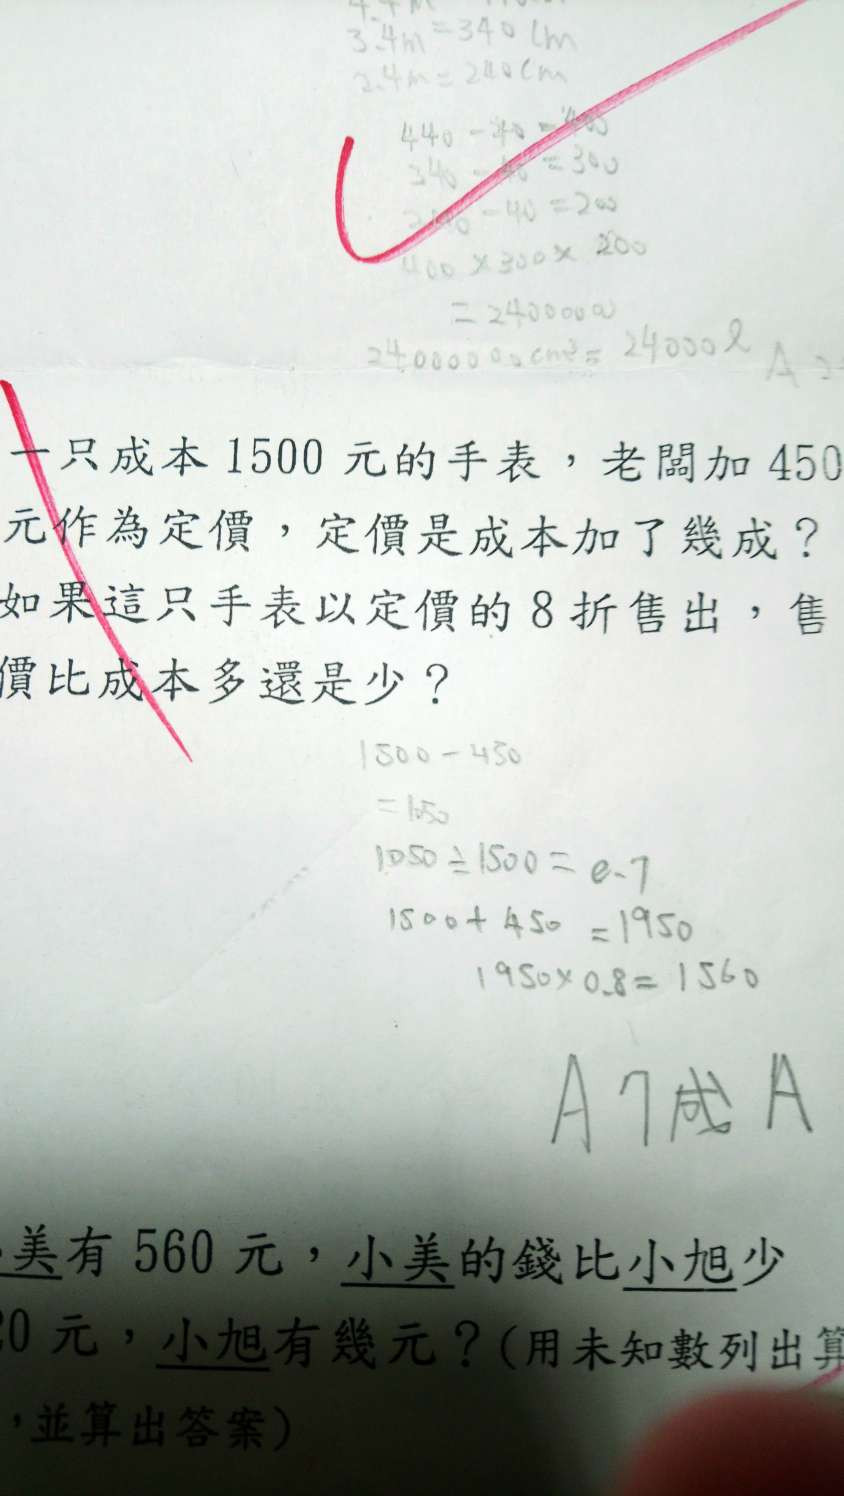 3.4m=340cm
2.4m=240cm
440-40=400
340-40=300
240-40=200
400×300×200
=24000000
24000000cm³=24000ℓ A
一只成本1500元的手表，老闆加450
元作為定價，定價是成本加了幾成？
如果這只手表以定價的8折售出，售
價比成本多還是少？
1500-450
=1050
1050÷1500=0.7
1500+450=1950
1950×0.8=1560
A 7成 A
美有560元，小美的錢比小旭少
20元，小旭有幾元？(用未知數列出算
，並算出答案)